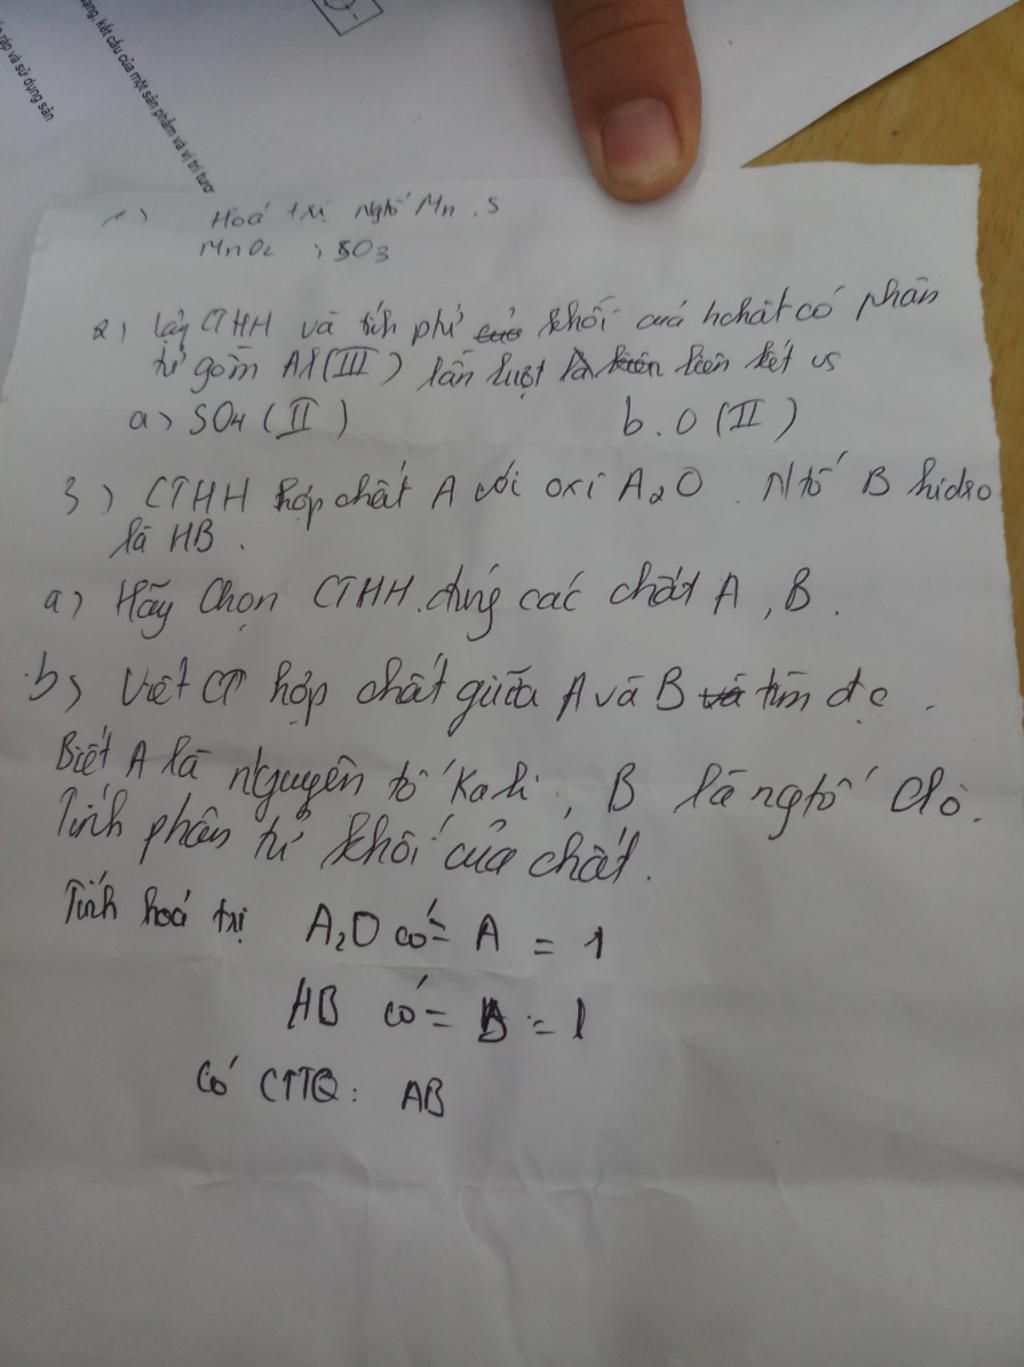 ạng, kết cấu của một sản phẩm và vị trí tươ
ráp và sử dụng sản
1) Hoá trị ngtố Mn, S
MnO2 ; SO3
2) lập CTHH và tính phtử khối củả hchất có phân
tử gồm Al(III) lần lượt là liên kết vs
a) SO4 (II) b. O (II)
3) CTHH hợp chất A với oxi A2O. Ntố B hidro
là HB.
a) Hãy Chọn CTHH đúng các chất A, B.
b) Viết CT hợp chất giữa A và B và tìm đc.
Biết A là nguyên tố Kali, B là ngtố Clo.
Tính phân tử khối của chất.
Tính hoá trị A2O có = A = 1
HB có = B = 1
Có CTTQ: AB